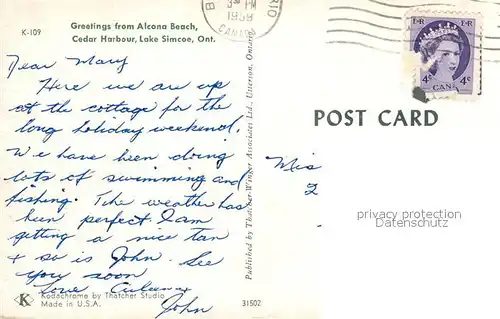 K-109
Greetings from Alcona Beach,
Cedar Harbour, Lake Simcoe, Ont.
3 PM
1958
CANADA
E R
4¢ 4¢
CANA
Dear Mary
Here we are up
at the cottage for the
long holiday weekend.
We have been doing
lots of swimming and
fishing. The weather has
been perfect I am
getting a nice tan
+ so is John. See
you soon
Love
John
K
Kodachrome by Thatcher Studio
Made in U.S.A.
31502
Published by Thatcher-Winger Associates Ltd., Utterson, Ontario
POST CARD
Mis
2
privacy protection
Datenschutz